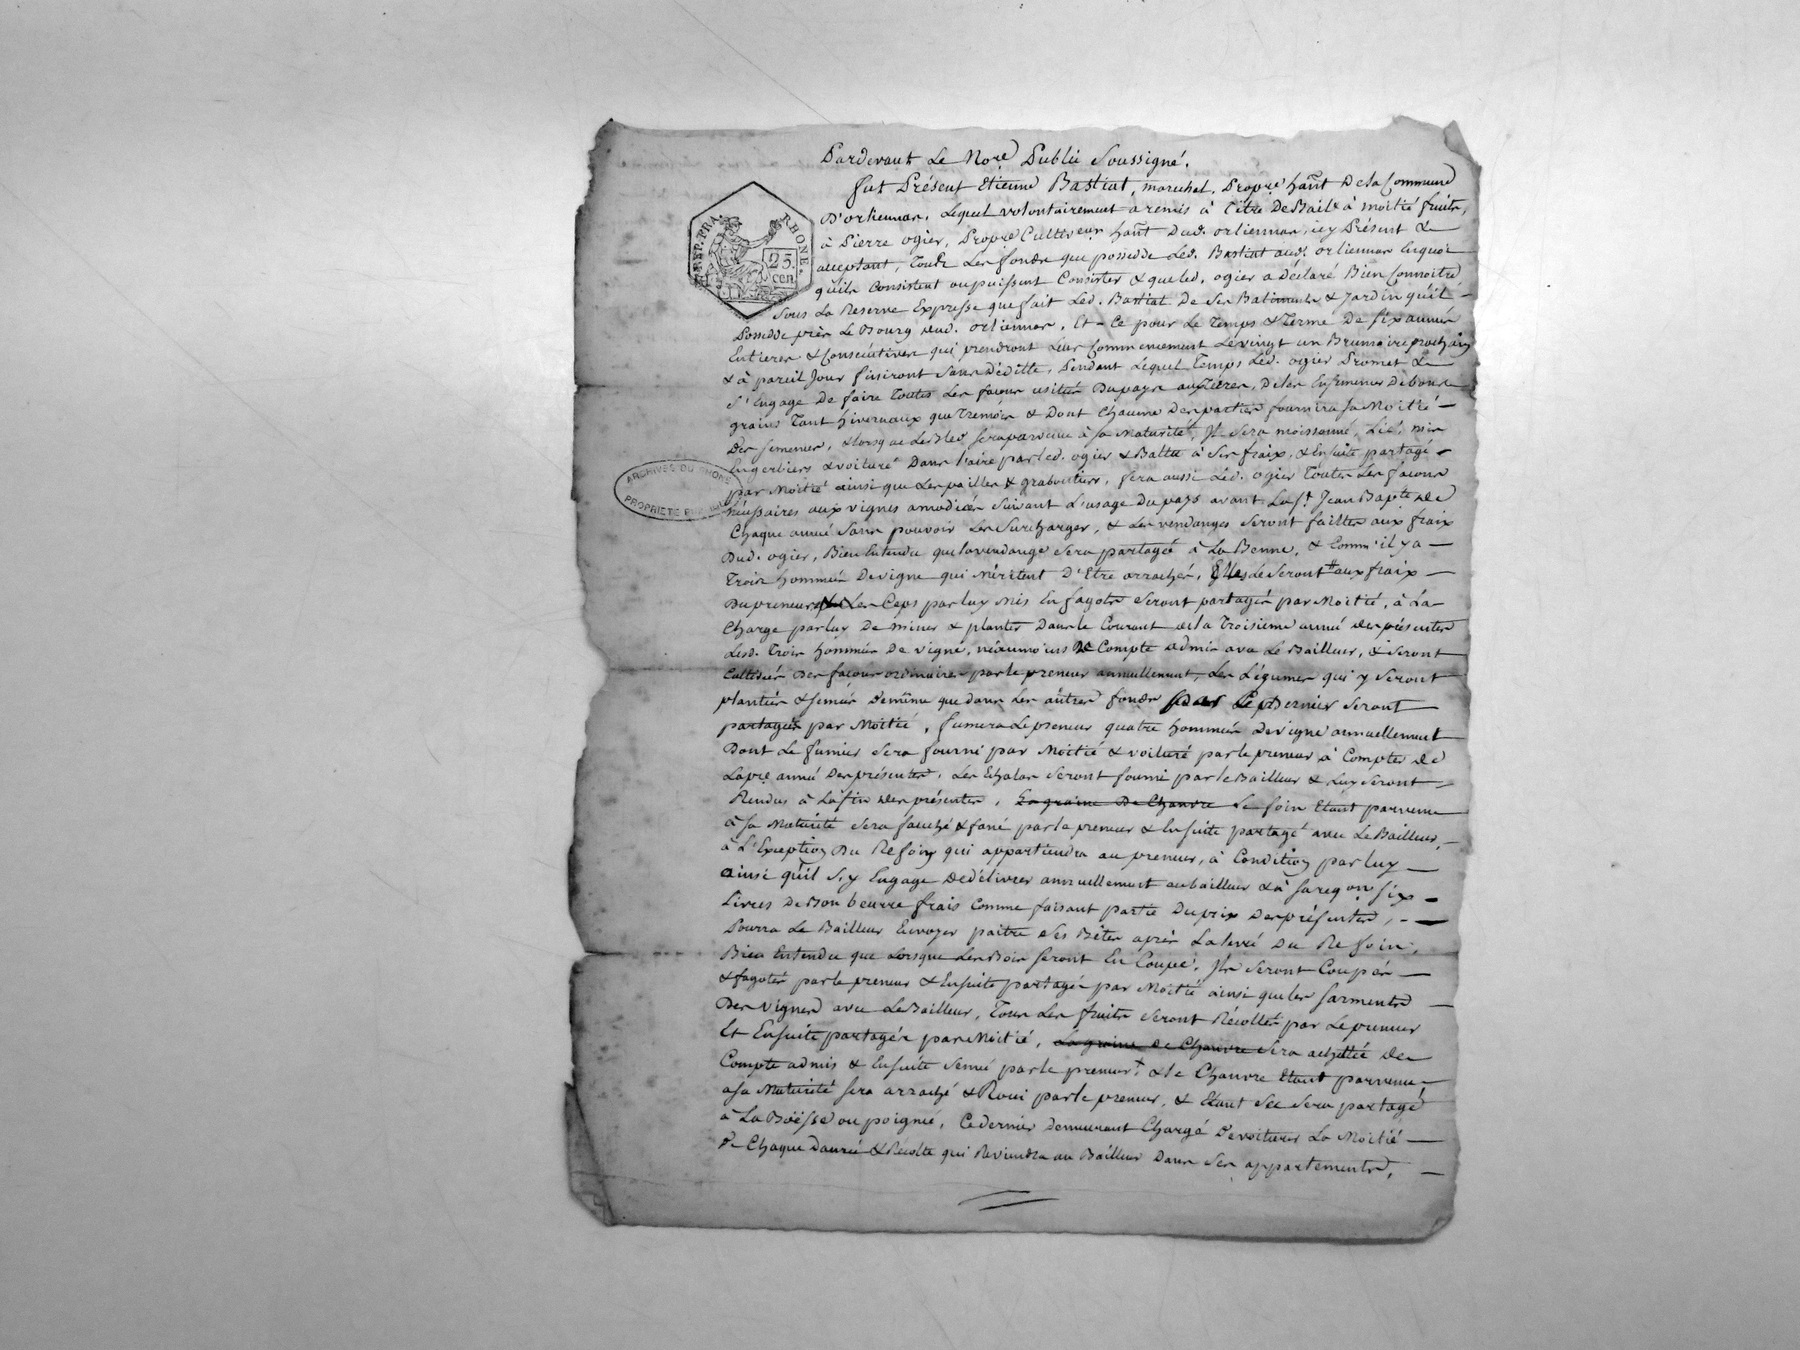 Pardevant Le No.re Public Soussigné.
fut Présent Etienne Bastiat, marechal, Propre. hant. De la Commune
D'orliennas, Lequel volontairement a remis à Titre De Bail & à moitié fruits,
à Pierre ogier, Propre Cultiveur hant. Dud. orliennas, icy Présent &
acceptant, Touts Les fonds que possedde Led. Bastiat aud. orliennas En quoi
quils Consistent ou puissent Consister & que led. ogier a Déclaré Bien Connoitre
Sous La Reserve Expresse que fait Led. Bastiat De Ses Batiments & Jardin qu'il
Possedde près Le Bourg dud. orliennas, Et Ce pour Le Temps & Terme De six années
Entieres & Consécutives qui prendront Leur Commencement Le vingt un Brumaire prochain
& à pareil Jour finiront Sans Déditte, Pendant Lequel Temps Led. ogier Promet &
S'Engage De faire Toutes Les façons usitées Du pays aux Terres, De les Ensemencer De bons
grains Tant hivernaux que Tremois & Dont Chacune Des parties fournira Sa Moitié
Des semences, & lorsque Les Bled sera parvenu à sa Maturité, Il Sera moissonné, Lié, mis
En gerbiers & voituré Dans l'aire par led. ogier & Battu à Ses fraix, & Ensuite partagé
par Moitié ainsi que Les pailles & , fera aussi Led. ogier Toutes Les façons
nécessaires aux vignes amodiées Suivant L'usage Du pays avant La St. Jean Bapte. De
Chaque année Sans pouvoir Les Surcharger, & Les vendanges Seront faittes aux fraix
Dud. ogier, Bien Entendu que la vendange Sera partagée à La Benne, & Comm'il y a
Trois hommées De vigne qui méritent D'Etre arrachés, Elles le Seront # aux fraix
Du preneur & Les Ceps par luy Mis En fagots Seront partagés par Moitié, à La
Charge par luy De miner & planter Dans le Courant de la Troisieme année des présentes
Lesd. Trois hommées De vigne, néanmoins De Compte admis avec Le Bailleur, & Seront
Cultivées Des façons ordinaires par le preneur annuellement, Les Légumes qui y Seront
plantés & semés Demême que dans Les autres fonds par Ce Dernier Seront
partagés par Moitié, fumera Le preneur quatre hommées De vigne annuellement
Dont Le fumier Sera fourni par Moitié & voituré par le preneur à Compter de
La pre. année Des présentes, Les Echalas Seront fourni par le Bailleur & Luy Seront
Rendus à La fin des présentes, La graine De Chanvre Le foin Etant parvenu
à Sa Maturité Sera fauché & fané par le preneur & Ensuite partagé avec Le Bailleur,
à L'Exception Du Refoin qui appartiendra au preneur, à Condition par luy
ainsi qu'il S'y Engage De délivrer annuellement au bailleur & à Sa reqon. six
Livres De Bon beurre frais Comme faisant partie Du prix Des présentes,
Pourra Le Bailleur Envoyer paitre Ses Bêtes après La levée Du Refoin,
Bien Entendu que Lorsque Les Bois Seront En Coupe, Ils Seront Coupés
& fagotés par le preneur & Ensuite partagés par Moitié ainsi que les Sarments
Des Vignes avec Le Bailleur, Tous Les fruits Seront Récoltés par Le preneur
Et Ensuite partagés par Moitié, La graine de Chanvre Sera achettée De
Compte admis & Ensuite Semé par le preneur + & le Chanvre Etant parvenu
a Sa Maturité Sera arraché & Roui par le preneur, & Etant Sec Sera partagé
à La ou poignée, Ce dernier Demeurant Chargé De voiturer La Moitié
De Chaque Danrée & Récolte qui Reviendra au Bailleur Dans Ses appartements,
REP. FRA.
RHONE.
25.
cen.
ARCHIVES DU RHONE
PROPRIETE PUBLIQUE